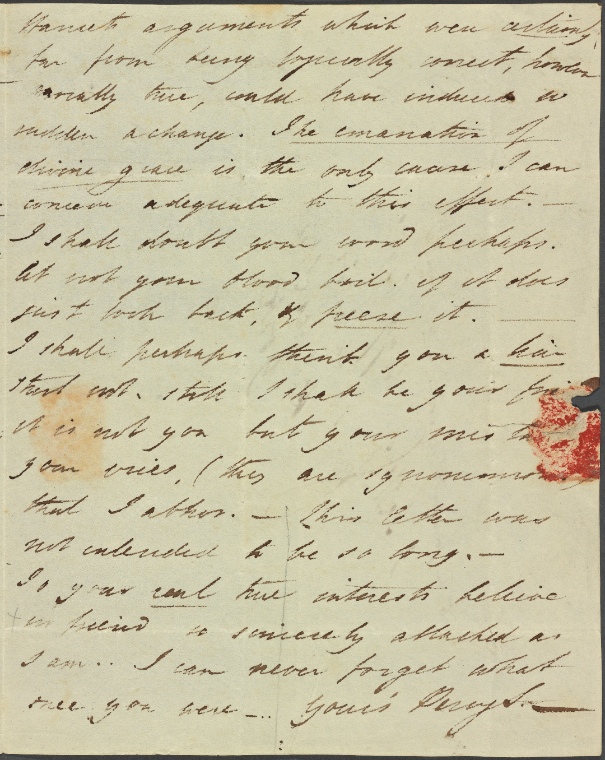 arguments which were certainly
far from being logically correct, however
morally true, could have induced so
sudden a change. The emanation of
divine grace is the only cause I can
conceive adequate to this effect. —
I shall doubt your word perhaps.
let not your blood boil. if it does
just look back, & freeze it. —
I shall perhaps think you a liar
start not. still I shall be your
it is not you but your
your vices, (they are synonimous)
that I abhor. — This letter was
not intended to be so long. —
To your real true interests believe
no friend so sincerely attached as
I am.. I can never forget what
once you were — .. Yours PercyS. —